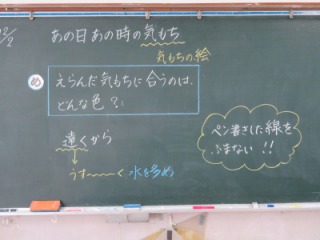 12/2
あの日あの時の気もち
気もちの絵
め
えらんだ気もちに合うのは、
どんな色?
遠くから
うす〜〜〜く 水を多め
ペン書きした線を
ふまない!!